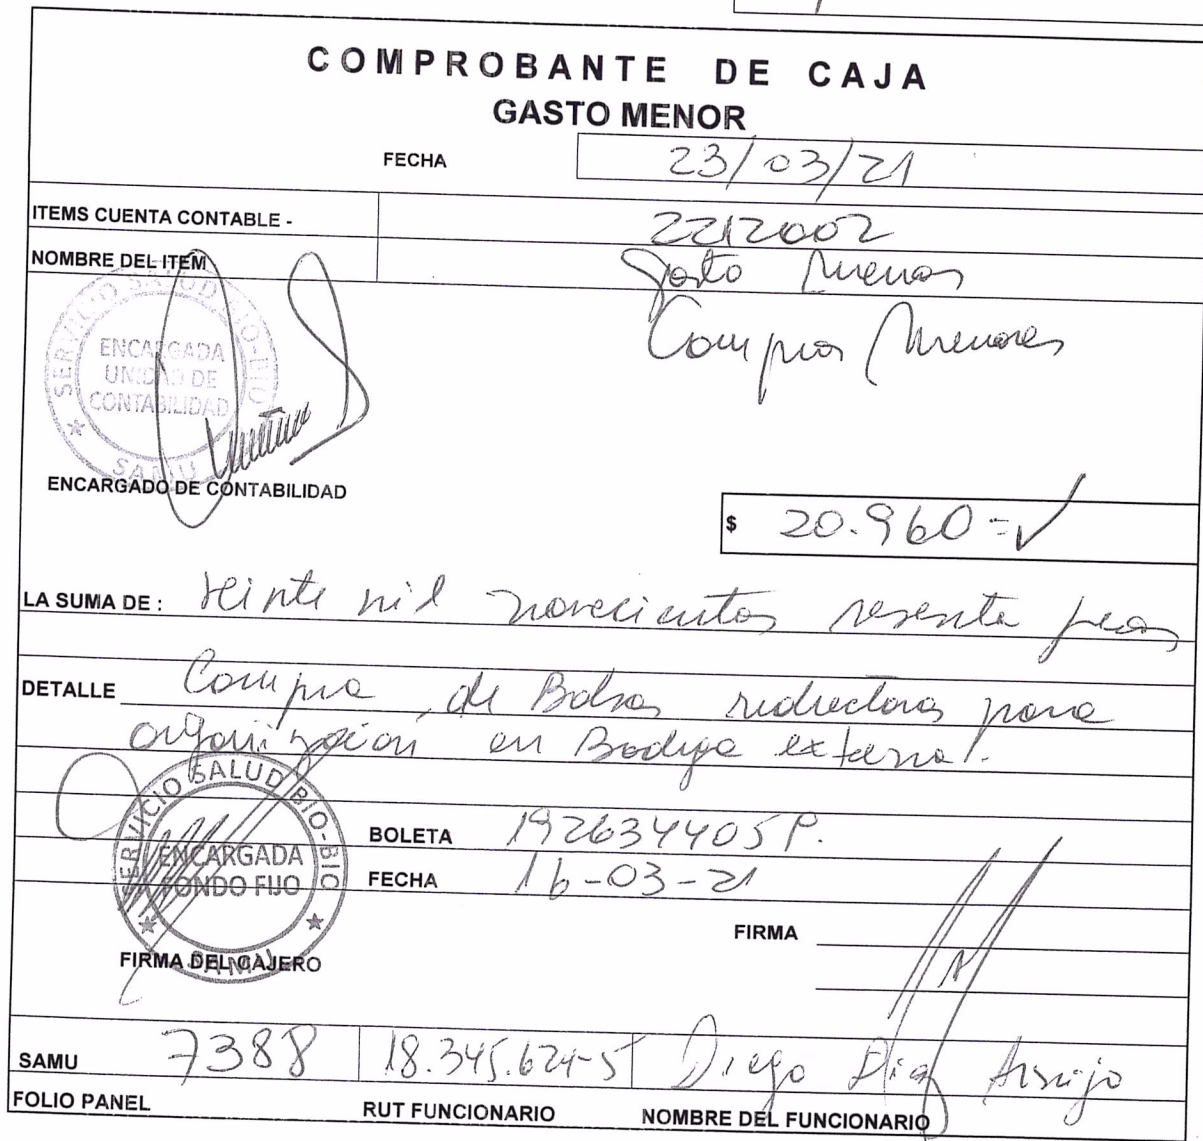 COMPROBANTE DE CAJA
GASTO MENOR
FECHA 23/03/21
ITEMS CUENTA CONTABLE - 2212002
NOMBRE DEL ITEM Gasto Menor
Compras Menores
SERVICIO SALUD BIO-BIO
ENCARGADA
UNIDAD DE
CONTABILIDAD
SAMU
ENCARGADO DE CONTABILIDAD
$ 20.960=
LA SUMA DE : Veinte mil novecientos sesenta pesos
DETALLE Compra de Bolsas reductoras para
organización en Bodega externa.
SERVICIO SALUD BIO-BIO
ENCARGADA
FONDO FIJO
SAMU
BOLETA 192634405P.
FECHA 16-03-21
FIRMA
FIRMA DEL CAJERO
SAMU 7388 18.345.624-5 Diego Diaz Araujo
FOLIO PANEL RUT FUNCIONARIO NOMBRE DEL FUNCIONARIO